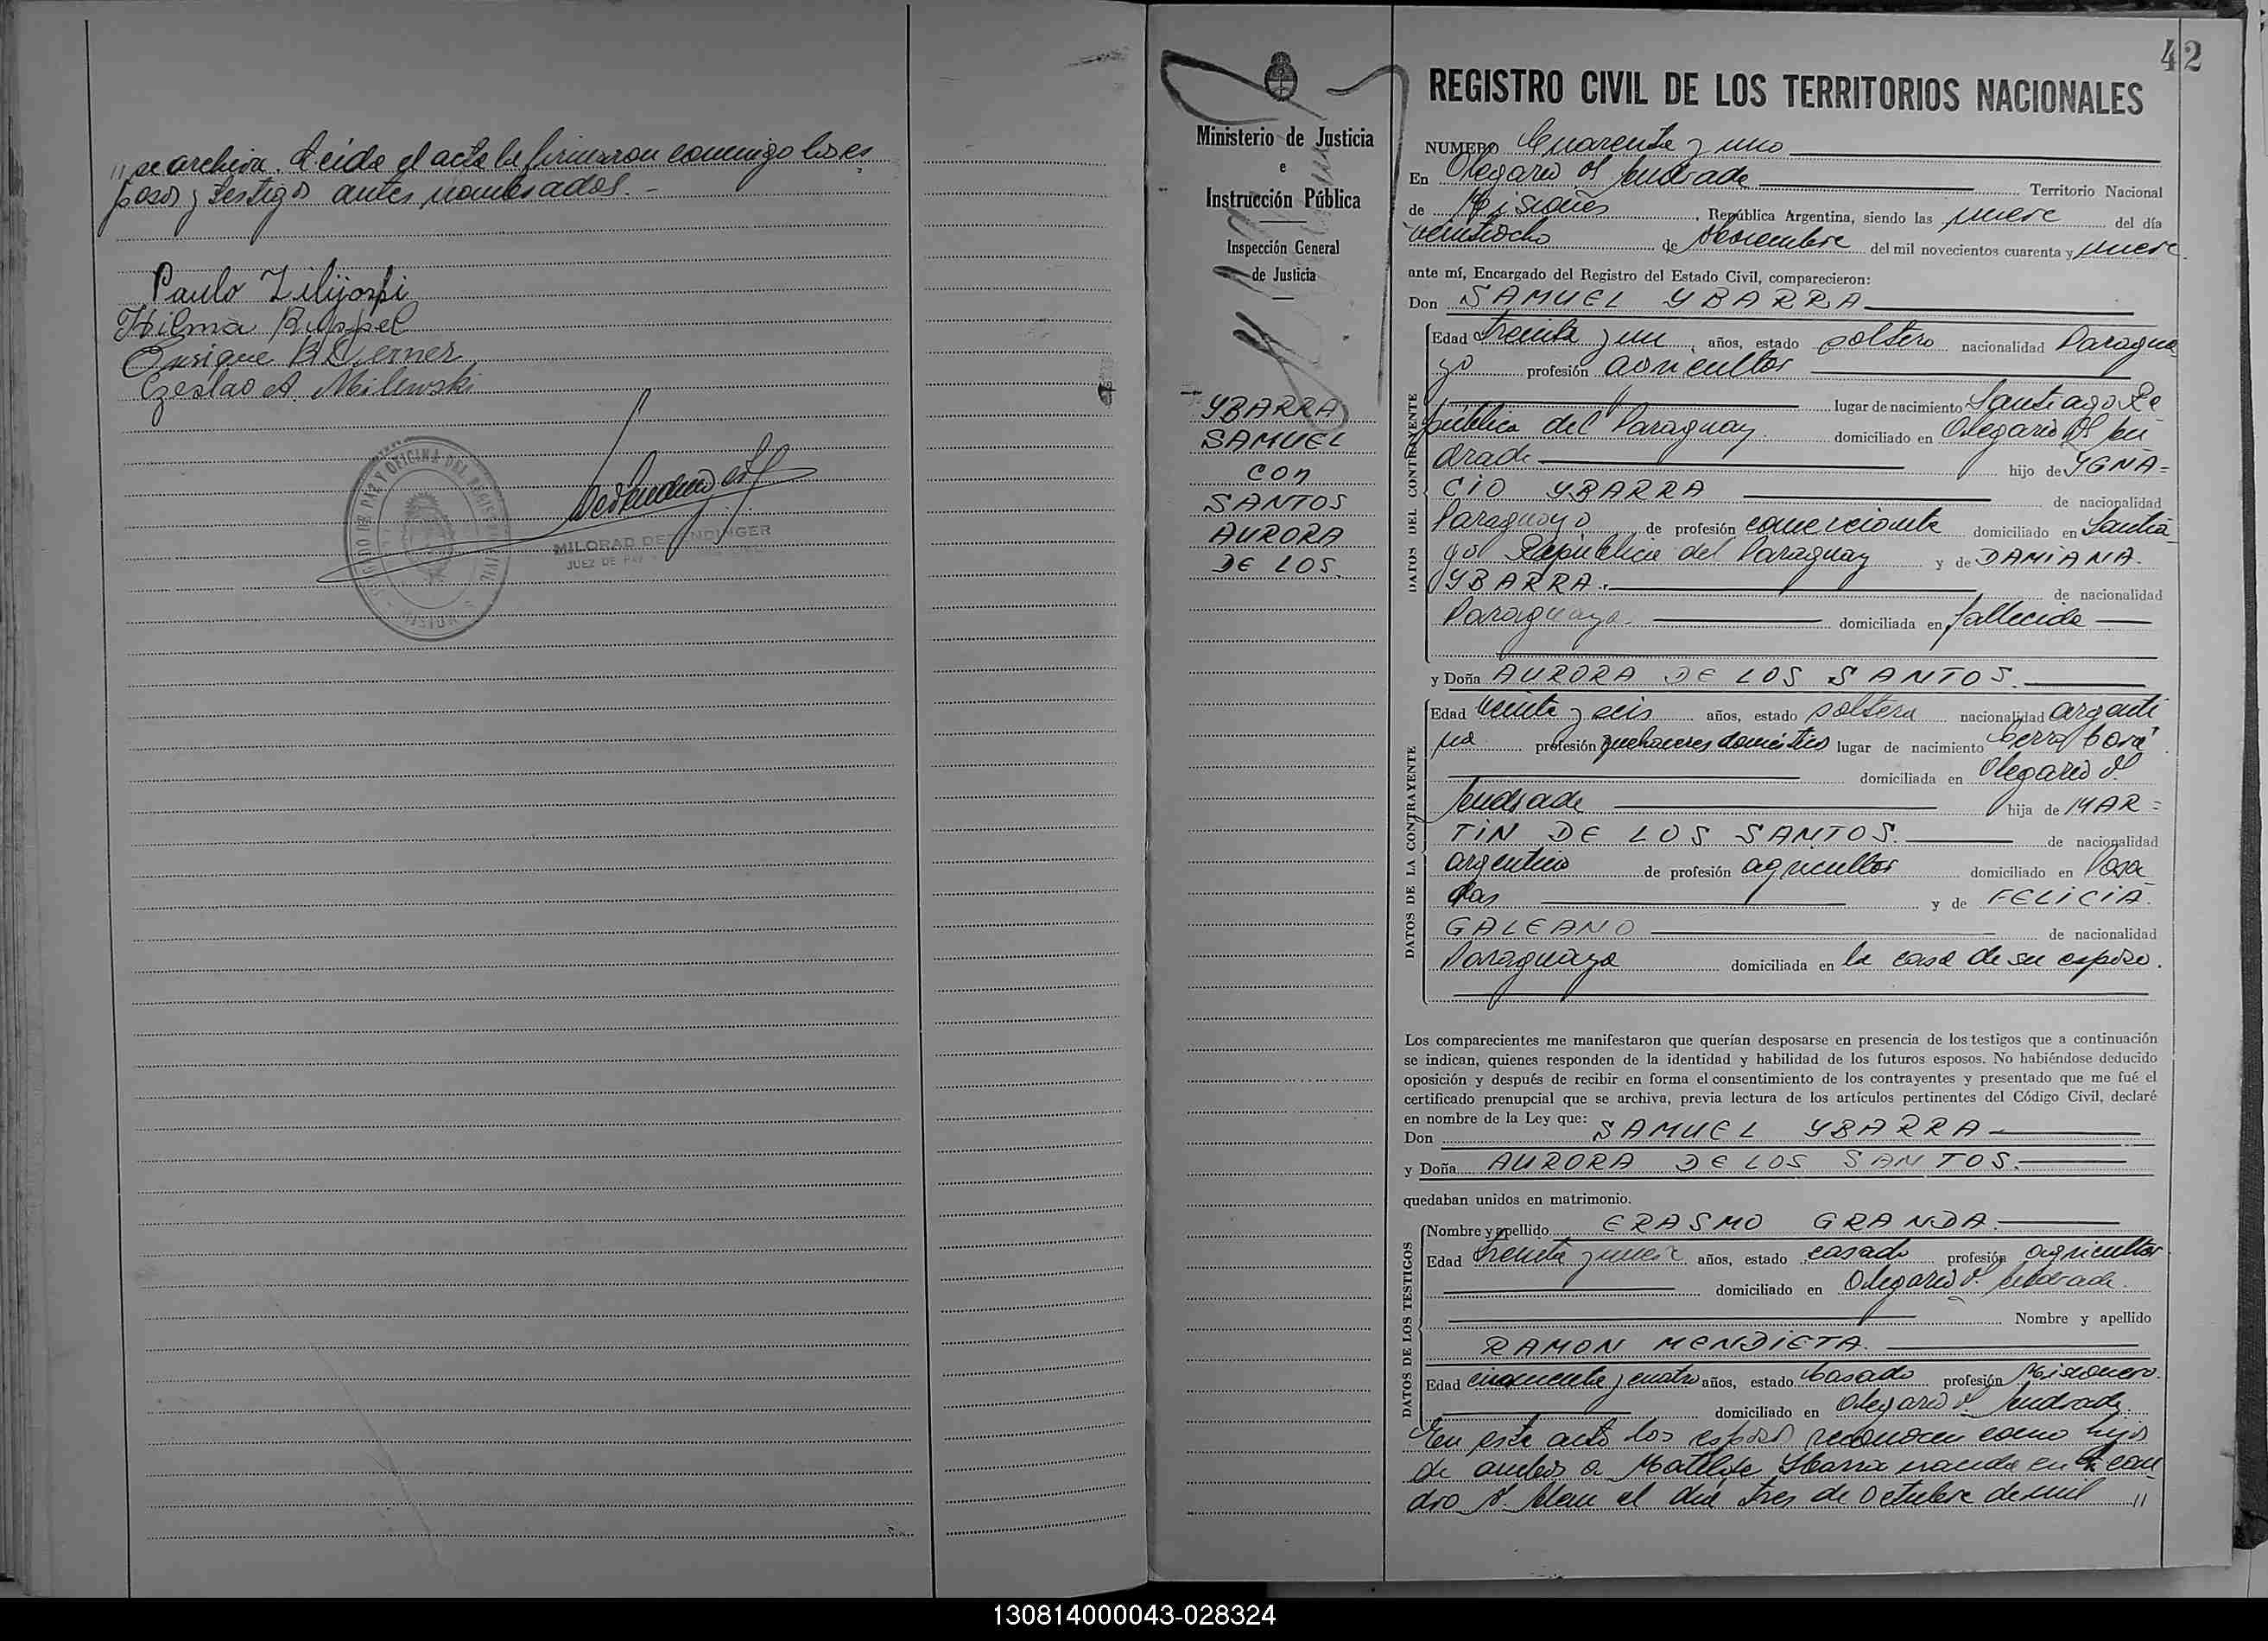 " se archiva. Leida el acta la firmaron conmigo los es
posos y testigos antes nombrados. -
Paulo Zilijoski
Hilma Ruppel
Enrique B Werner
Czeslao A. Milewski
OFICINA DEL REGISTRO CIVIL
MILORAD DEFENDINGER
JUEZ DE PAZ
42
Ministerio de Justicia
e
Instrucción Pública
Inspección General
de Justicia
YBARRA
SAMUEL
con
SANTOS
AURORA
DE LOS.
REGISTRO CIVIL DE LOS TERRITORIOS NACIONALES
NUMERO Cuarenta y uno
En Olegario V. Andrade Territorio Nacional
de Misiones, República Argentina, siendo las nueve del día
veintiocho de del mil novecientos cuarenta y nueve.
ante mí, Encargado del Registro del Estado Civil, comparecieron:
Don SAMUEL YBARRA
DATOS DEL CONTRAYENTE
Edad treinta y un, años, estado soltero nacionalidad Paragua
yo profesión agricultor
lugar de nacimiento Santiago Re
pública del Paraguay. domiciliado en Olegario V. An
drade hijo de YGNA=
CIO YBARRA de nacionalidad
Paraguayo de profesión comerciante domiciliado en Santia
go República del Paraguay y de DAMIANA.
YBARRA. de nacionalidad
Paraguaya. domiciliada en fallecida
y Doña AURORA DE LOS SANTOS.
DATOS DE LA CONTRAYENTE
Edad veinte y seis años, estado soltera nacionalidad argenti
na profesión quehaceres domésticos lugar de nacimiento Cerro Corá
domiciliada en Olegario V.
Andrade hija de MAR=
TIN DE LOS SANTOS. de nacionalidad
argentino de profesión agricultor domiciliado en Posa
das y de FELICIA.
GALEANO de nacionalidad
Paraguaya domiciliada en la casa de su esposo.
Los comparecientes me manifestaron que querían desposarse en presencia de los testigos que a continuación
se indican, quienes responden de la identidad y habilidad de los futuros esposos. No habiéndose deducido
oposición y después de recibir en forma el consentimiento de los contrayentes y presentado que me fué el
certificado prenupcial que se archiva, previa lectura de los artículos pertinentes del Código Civil, declaré
en nombre de la Ley que:
Don SAMUEL YBARRA
y Doña AURORA DE LOS SANTOS.
quedaban unidos en matrimonio.
DATOS DE LOS TESTIGOS
Nombre y apellido ERASMO GRANDA.
Edad treinta y nueve años, estado casado profesión agricultor
domiciliado en Olegario V. Andrade.
Nombre y apellido
RAMON MENDIETA.
Edad cincuenta y cuatro años, estado casado profesión
domiciliado en Olegario V. Andrade.
En este acto los esposos reconocen como hijos
de ambos a Matilde Ibarra nacida en Lean
dro N. Alem el día tres de octubre de mil "
130814000043-028324